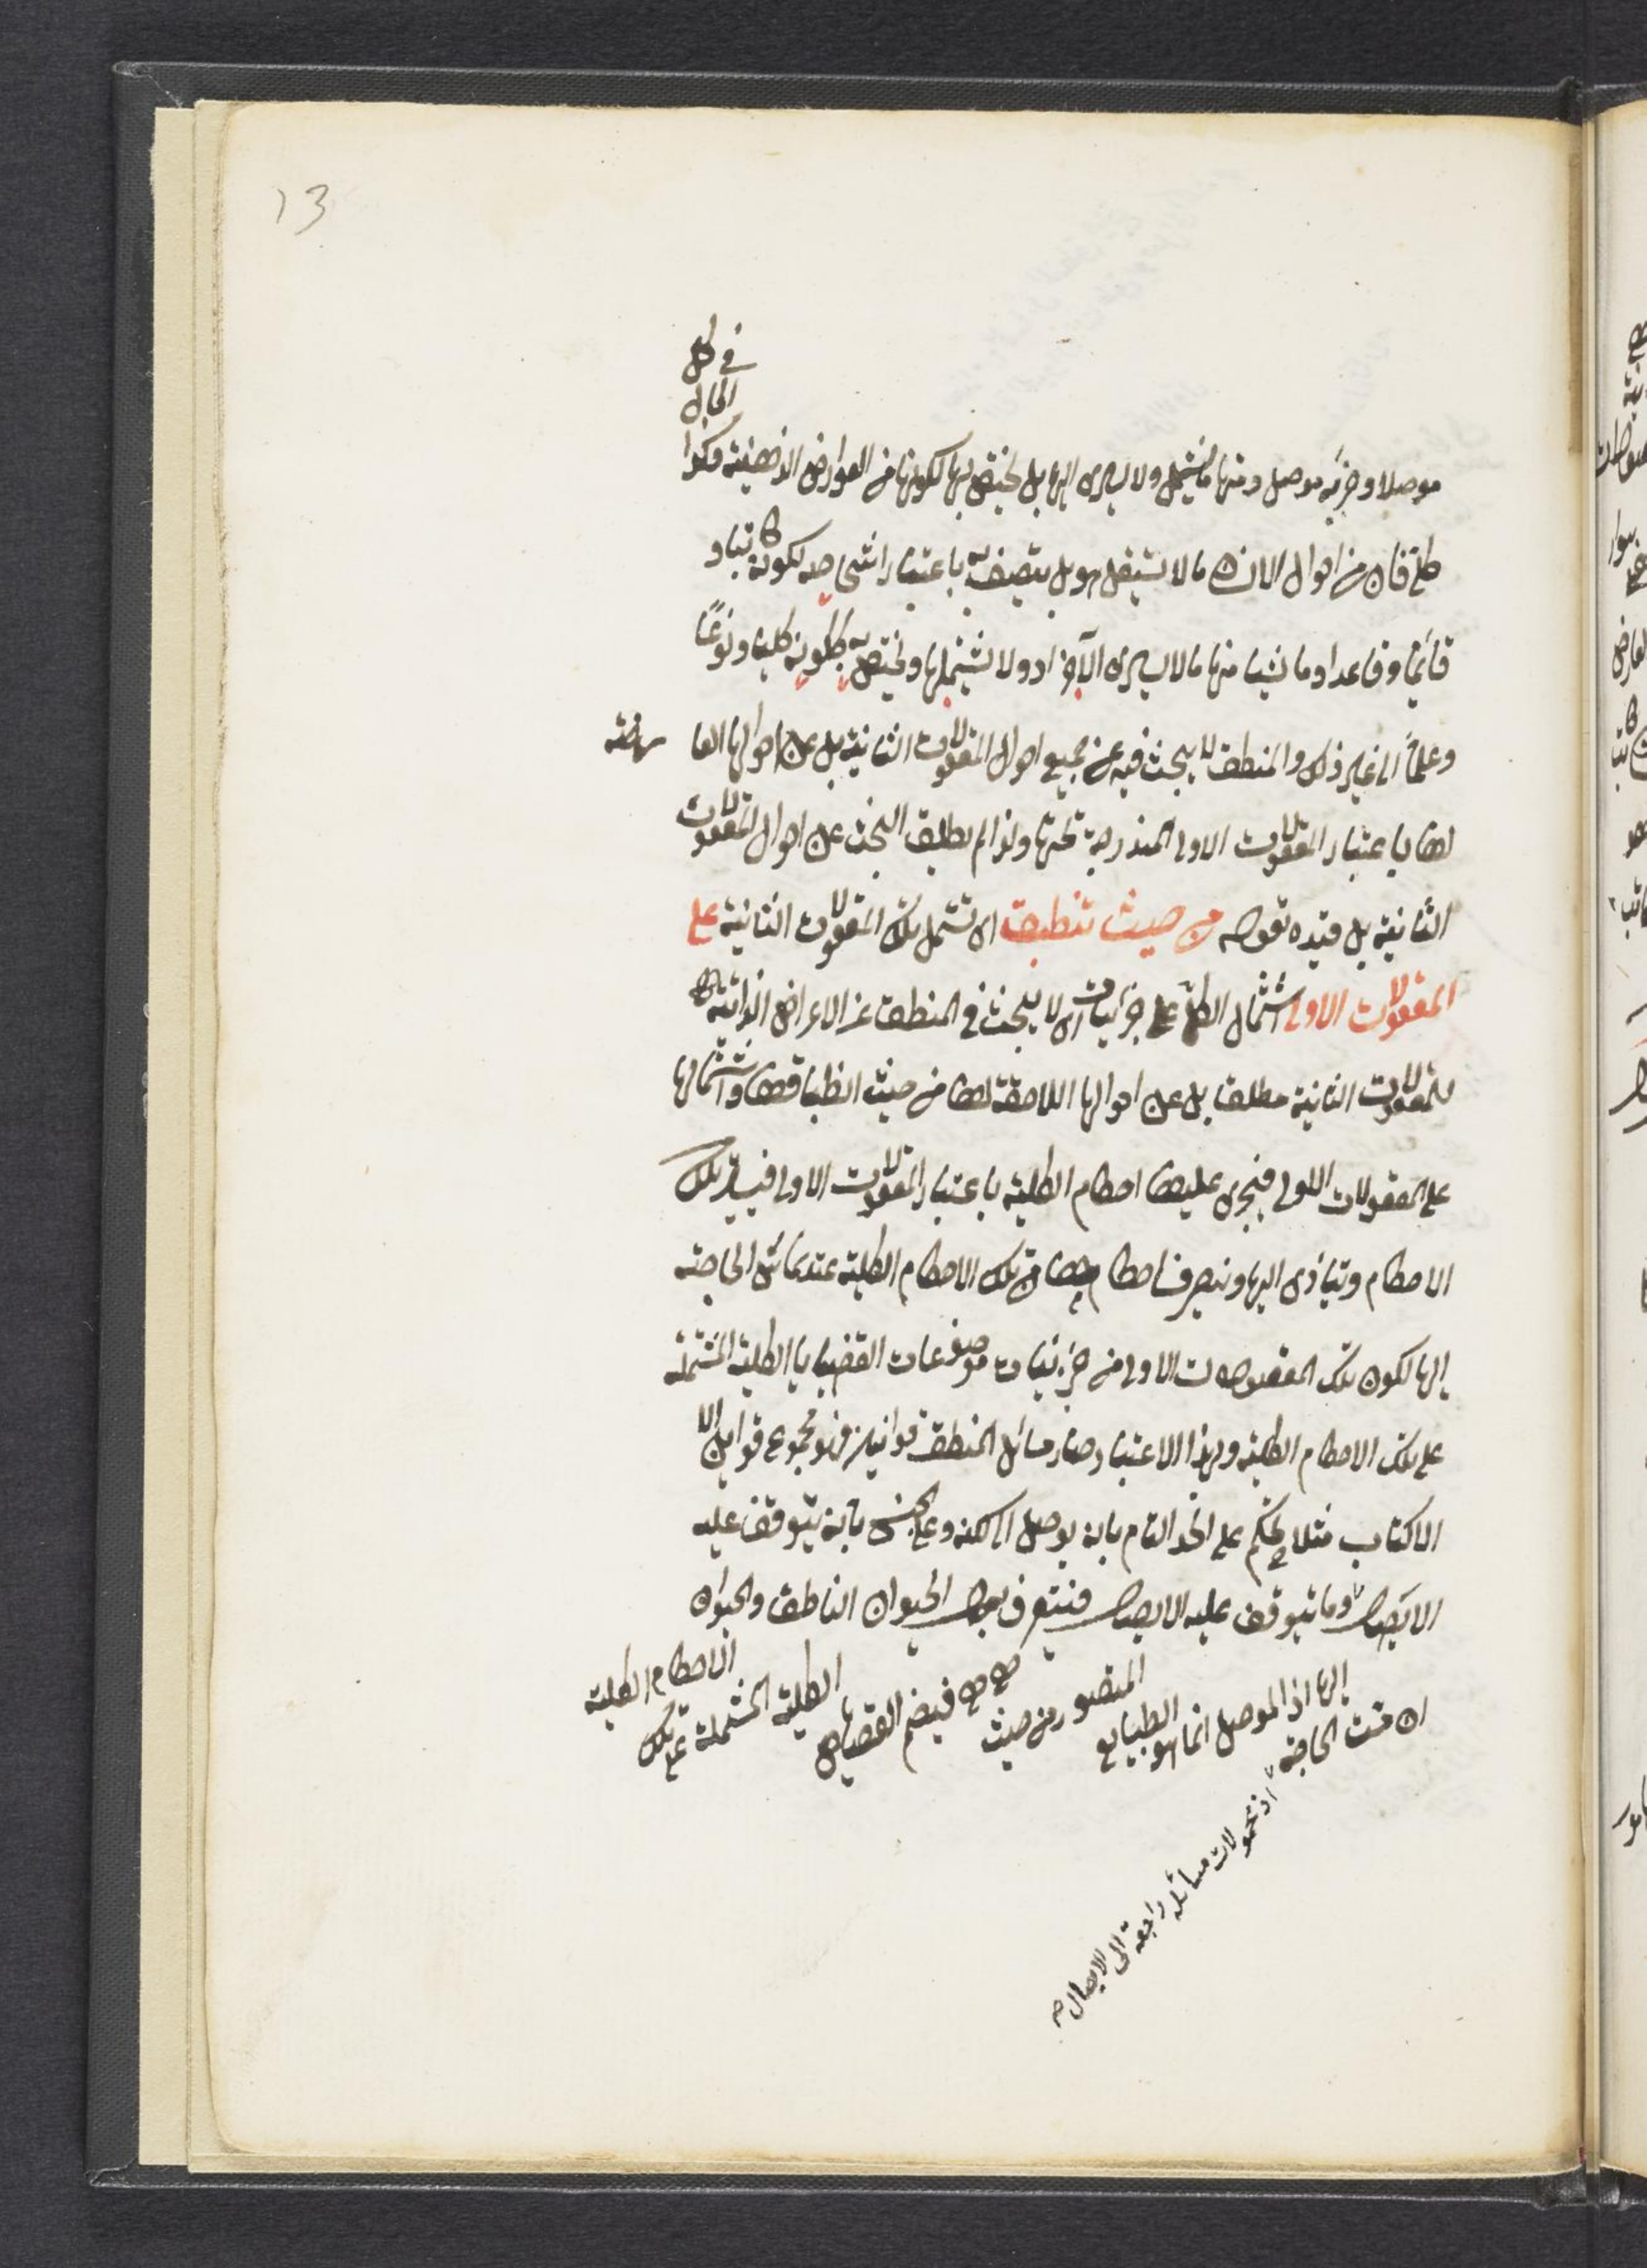 13
في كل
الحال
موصلا وجزء موصل ومنها ما يشمل ولا يسرى اليها بل يختص بها لكونها من العوارض الذهنية وهكذا
فان من احوال الانسان ما لا يستقل هو بل يتصف به باعتبار اشخاصه لكونه كاتبا و
قائما وقاعدا وماشيا منها ما لا يسرى الى الافراد ولا يشملها ويختص به ككونه كليا ونوعًا
وعلماً الى غير ذلك والمنطق لا يبحث فيه عن جميع احوال المعقولات الثانية بل عن احوالها العا رضة
لها باعتبار المعقولات الاولى المندرجة تحتها ولذا لم يطلق البحث عن احوال المعقولات
الثانية بل قيده بقوله من حيث تنطبق اى تشمل تلك المعقولات الثانية على
المعقولات الاولى اشتمال الكلى على جزئيات اى لا يبحث في المنطق عن الاعراض الذاتية
للمعقولات الثانية مطلقا بل عن احوالها اللاحقة لها من حيث انطباقها واشتمالها
على المعقولات الاولى فيجرى عليها احكام الكلية باعتبار المعقولات الاولى تلك
الاحكام وتتأدى اليها ويتعرف احكامها من تلك الاحكام الكلية عند الحاجة
اليها لكون تلك المعقولات الاولى من جزئيات موضوعات القضايا الكلية المشتملة
على تلك الاحكام الكلية ولهذا الاعتبار صار مسائل المنطق قوانين فهو مجموع قوانين
الاكتساب مثلا يحكم على الحد التام بانه يوصل الى الكنه وعلى الجنس بانه يتوقف عليه
الايصال وما يتوقف عليه الايصال فيتعرف حال الحيوان الناطق والحيوان
ان مست الحاجة اليها اذ الموصل انما هو الطبايع المتصور من حيث هى هى فيضم القضايا الكلية المشتملة على تلك الاحكام الكلية
اذ محمولات مسائله راجعة الى الايصال